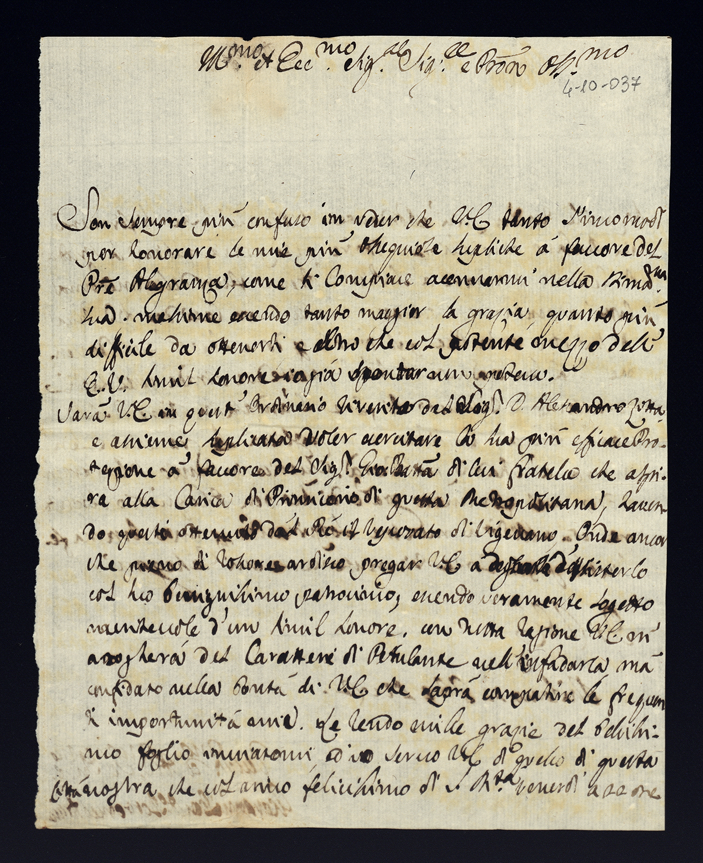 Ill.mo et Ecc.mo Sig.r Sig.r e Pron Oss.mo
4-20-037
Son sempre più confuso in veder che VE tanto s'incomodi
per honorare le mie più ossequiose supliche a favore del
Pre Alegranza, come si Compiace acennarmi nella stimd.ma
sua. mentre essendo tanto maggior la grazia quanto più
difficile da ottenersi e altro che col potente mezzo dell
E.V. simil honore
Sarà VE in quest Ordinario riverita dal Sig.r D. Alessandro
e assieme suplicata voler accordare la sua più efficace Pro-
tezione a favore del Sig.r Gio Batta di lui fratello che aspi-
ra alla Carica di Primicerio di questa Metropolitana, haven-
do questi ottenuto dal Rè il Vescovato di Vigevano. Onde ancor
che pieno di rossore ardisco pregar VE a d'assisterlo
col suo benignissimo patrocinio, essendo veramente sogetto
meritevole d'un simil honore. con tutta ragione VE m
del Carattere di Petulante nell'infadarla mà
confidato nella bontà di VE che saprà compatire le frequen
ti importunità mie. Le rendo mille grazie del bellissi-
mo foglio inviatomi ed io servo VE di quello di questa
Città nostra che col arrivo felicissimo di S. M.tà venerdì a ore